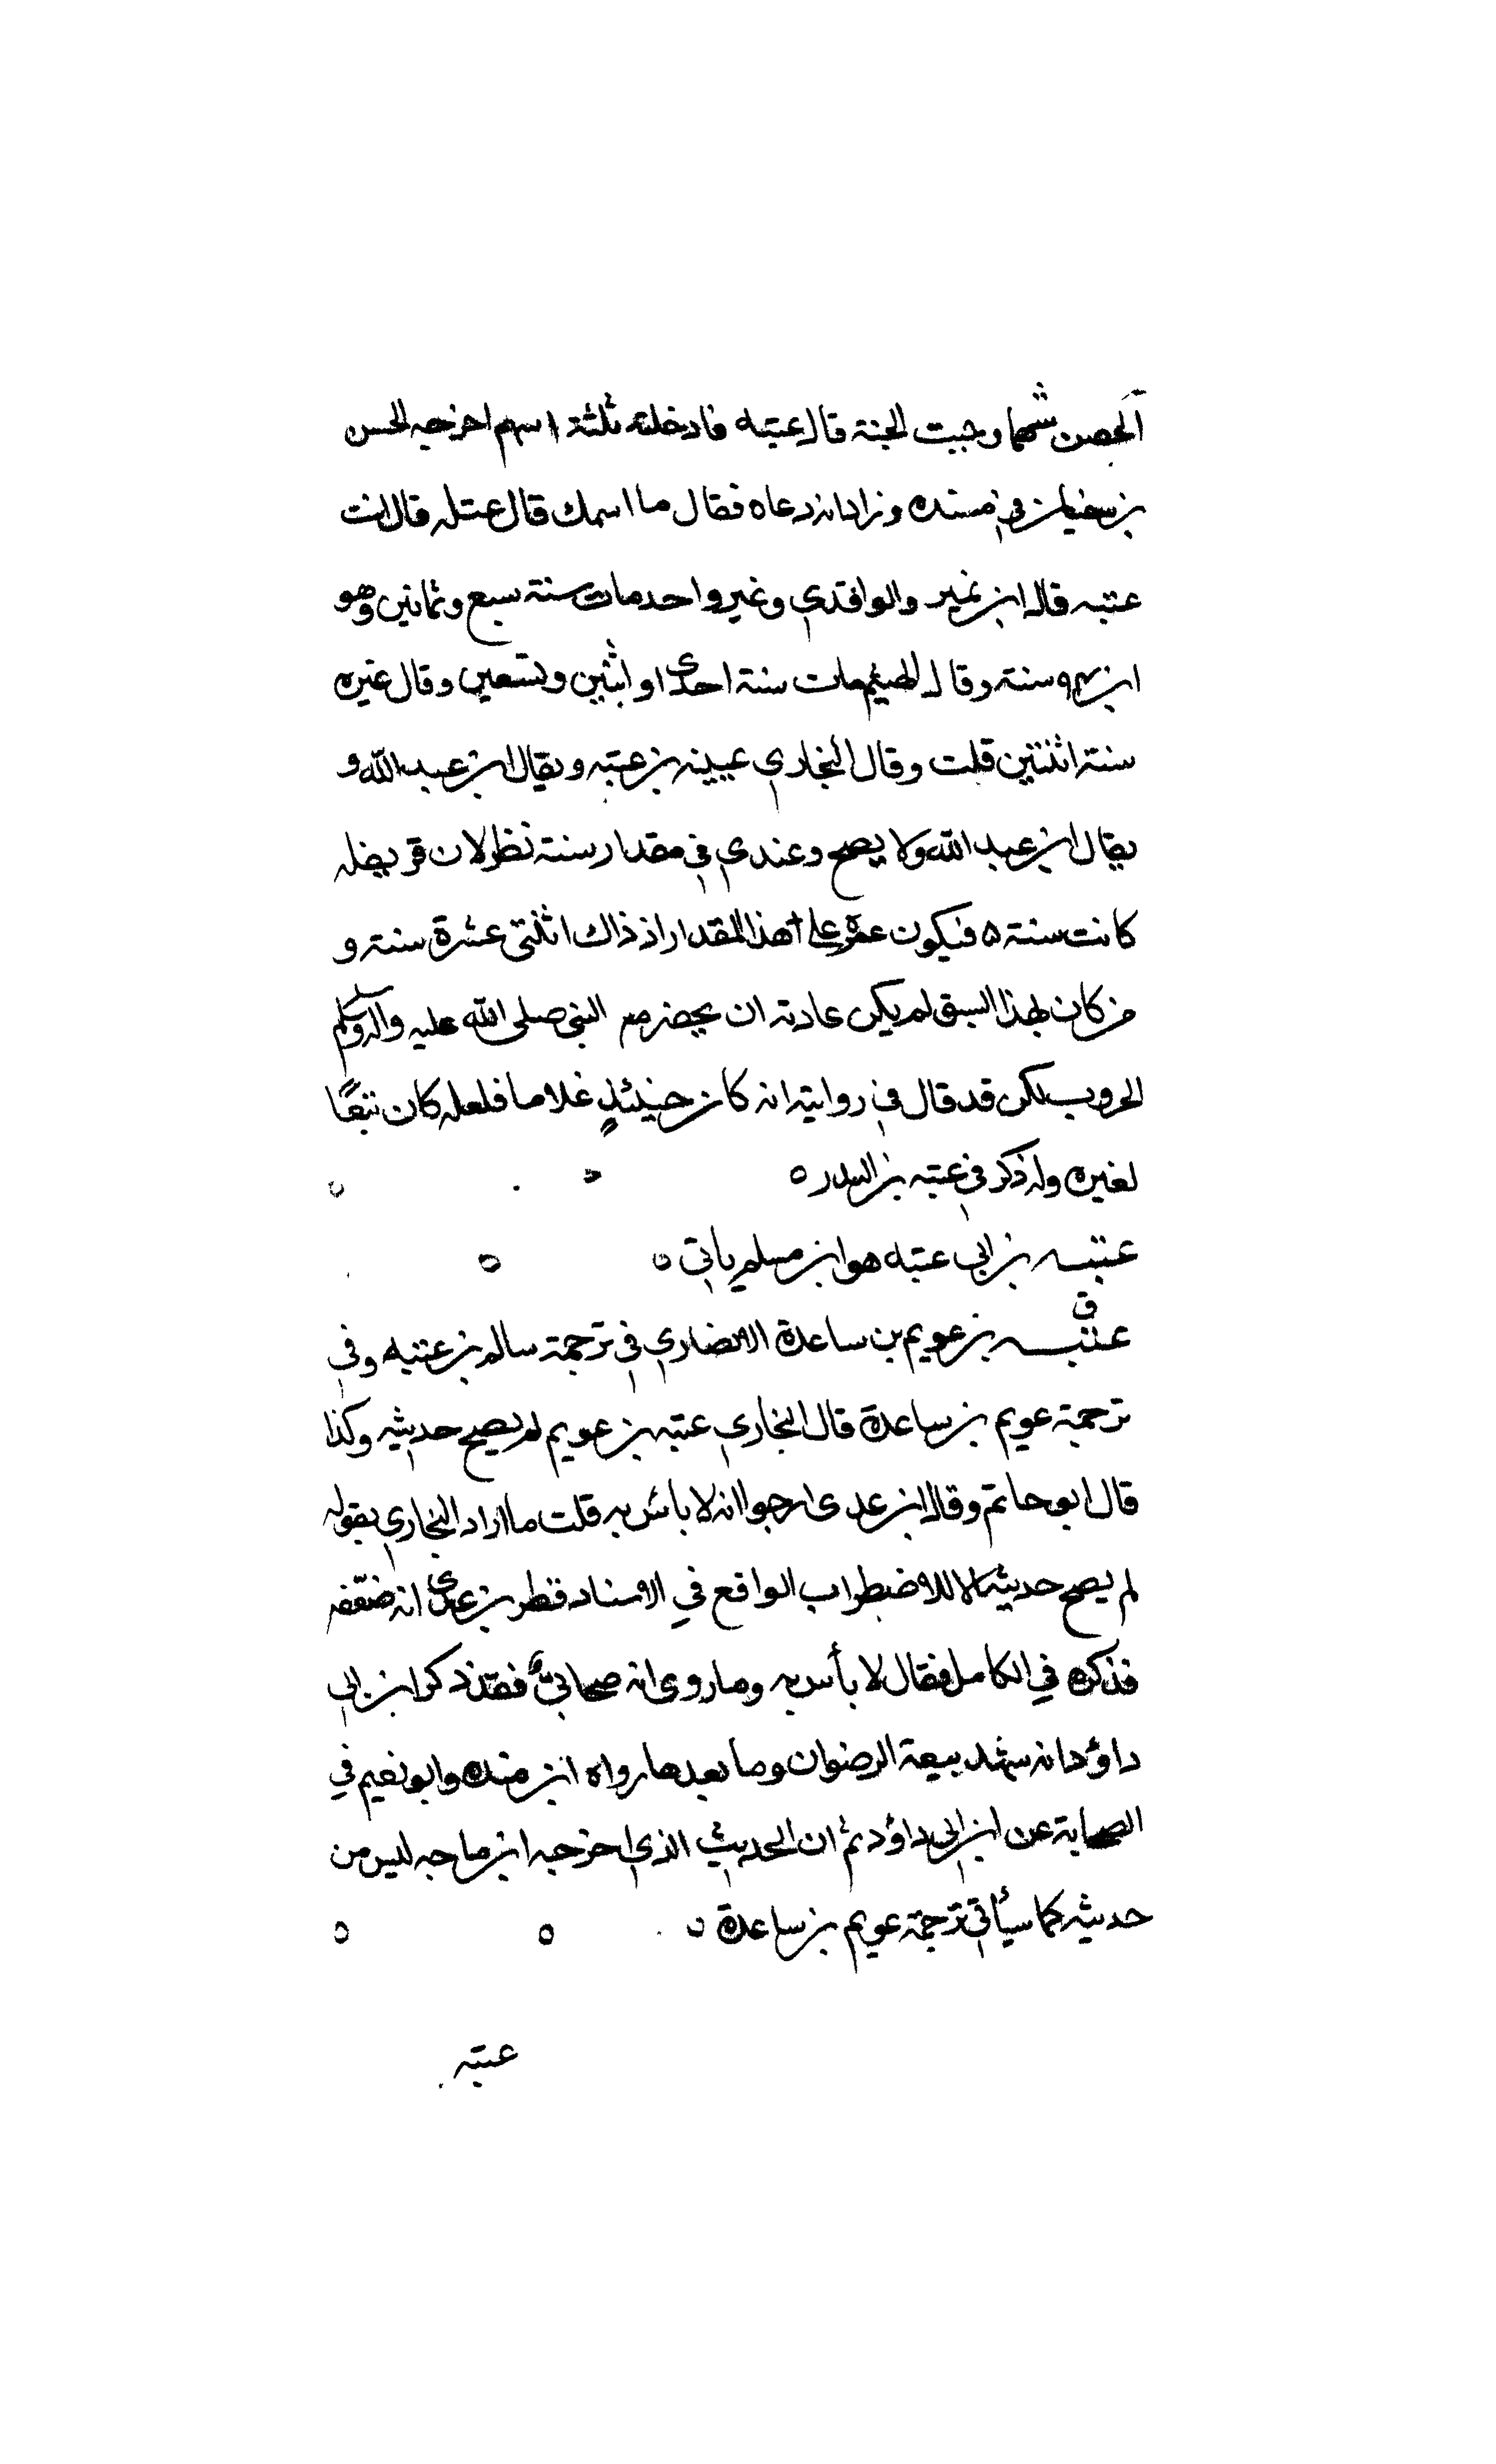 الحصن سهما وجبت الجنة قال عتبه فادخلته ثلثة اسهم اخرجه الحسن
بن سفيان في مسنده وزاد انه دعاه فقال ما اسمك قال عتله قال انت
عتبه قال ابن نمير والواقدي وغير واحد مات سنة سبع وثمانين وهو
ابن ٩٤ سنة وقال الهيثم مات سنة احدى او اثنين وتسعين وقال غيره
سنة اثنتين قلت وقال البخاري عيينه بن عتبه ويقال ابن عبد الله و
يقال ابن عبد الله ولا يصح وعندي في مقدار سنة نظر لان قريضله
كانت سنة ٥ فيكون عمره على هذا المقدار اذ ذاك اثنتى عشرة سنة و
من كان لهذا السبق لم يكن عادته ان يحضر مع النبي صلى الله عليه واله وسلم
الحروب لكن قد قال في روايته انه كان حينئذٍ غلاما فلعله كان تبعًا
لغيره وله ذكر في عتبه بن الندر ه
عتبه بن ابى عتبه هو ابن مسلم ياتي ه
ق
عتبه بن عويم بن ساعدة الانصاري في ترجمة سالم بن عتبه وفي
ترجمة عويم بن ساعدة قال البخاري عتبه بن عويم لم يصح حديثه وكذا
قال ابو حاتم وقال ابن عدى ارجوا انه لا بأس به قلت ما اراد البخاري بقوله
لم يصح حديثه الا للاضطراب الواقع في الاسناد فظن بن عدى انه ضعّفه
فذكره في الكامل فقال لا بأس به وما روى انه صحابيٌ فقد ذكر ابن ابي
داؤد انه شهد بيعة الرضوان وما بعدها رواه ابن منده وابو نعيم في
الصحابة عن ابن ابي داؤد ثم ان الحديث الذي اخرجه ابن ماجه ليس من
حديثه كما سيأتي ترجمة عويم بن ساعدة ه
عتبه